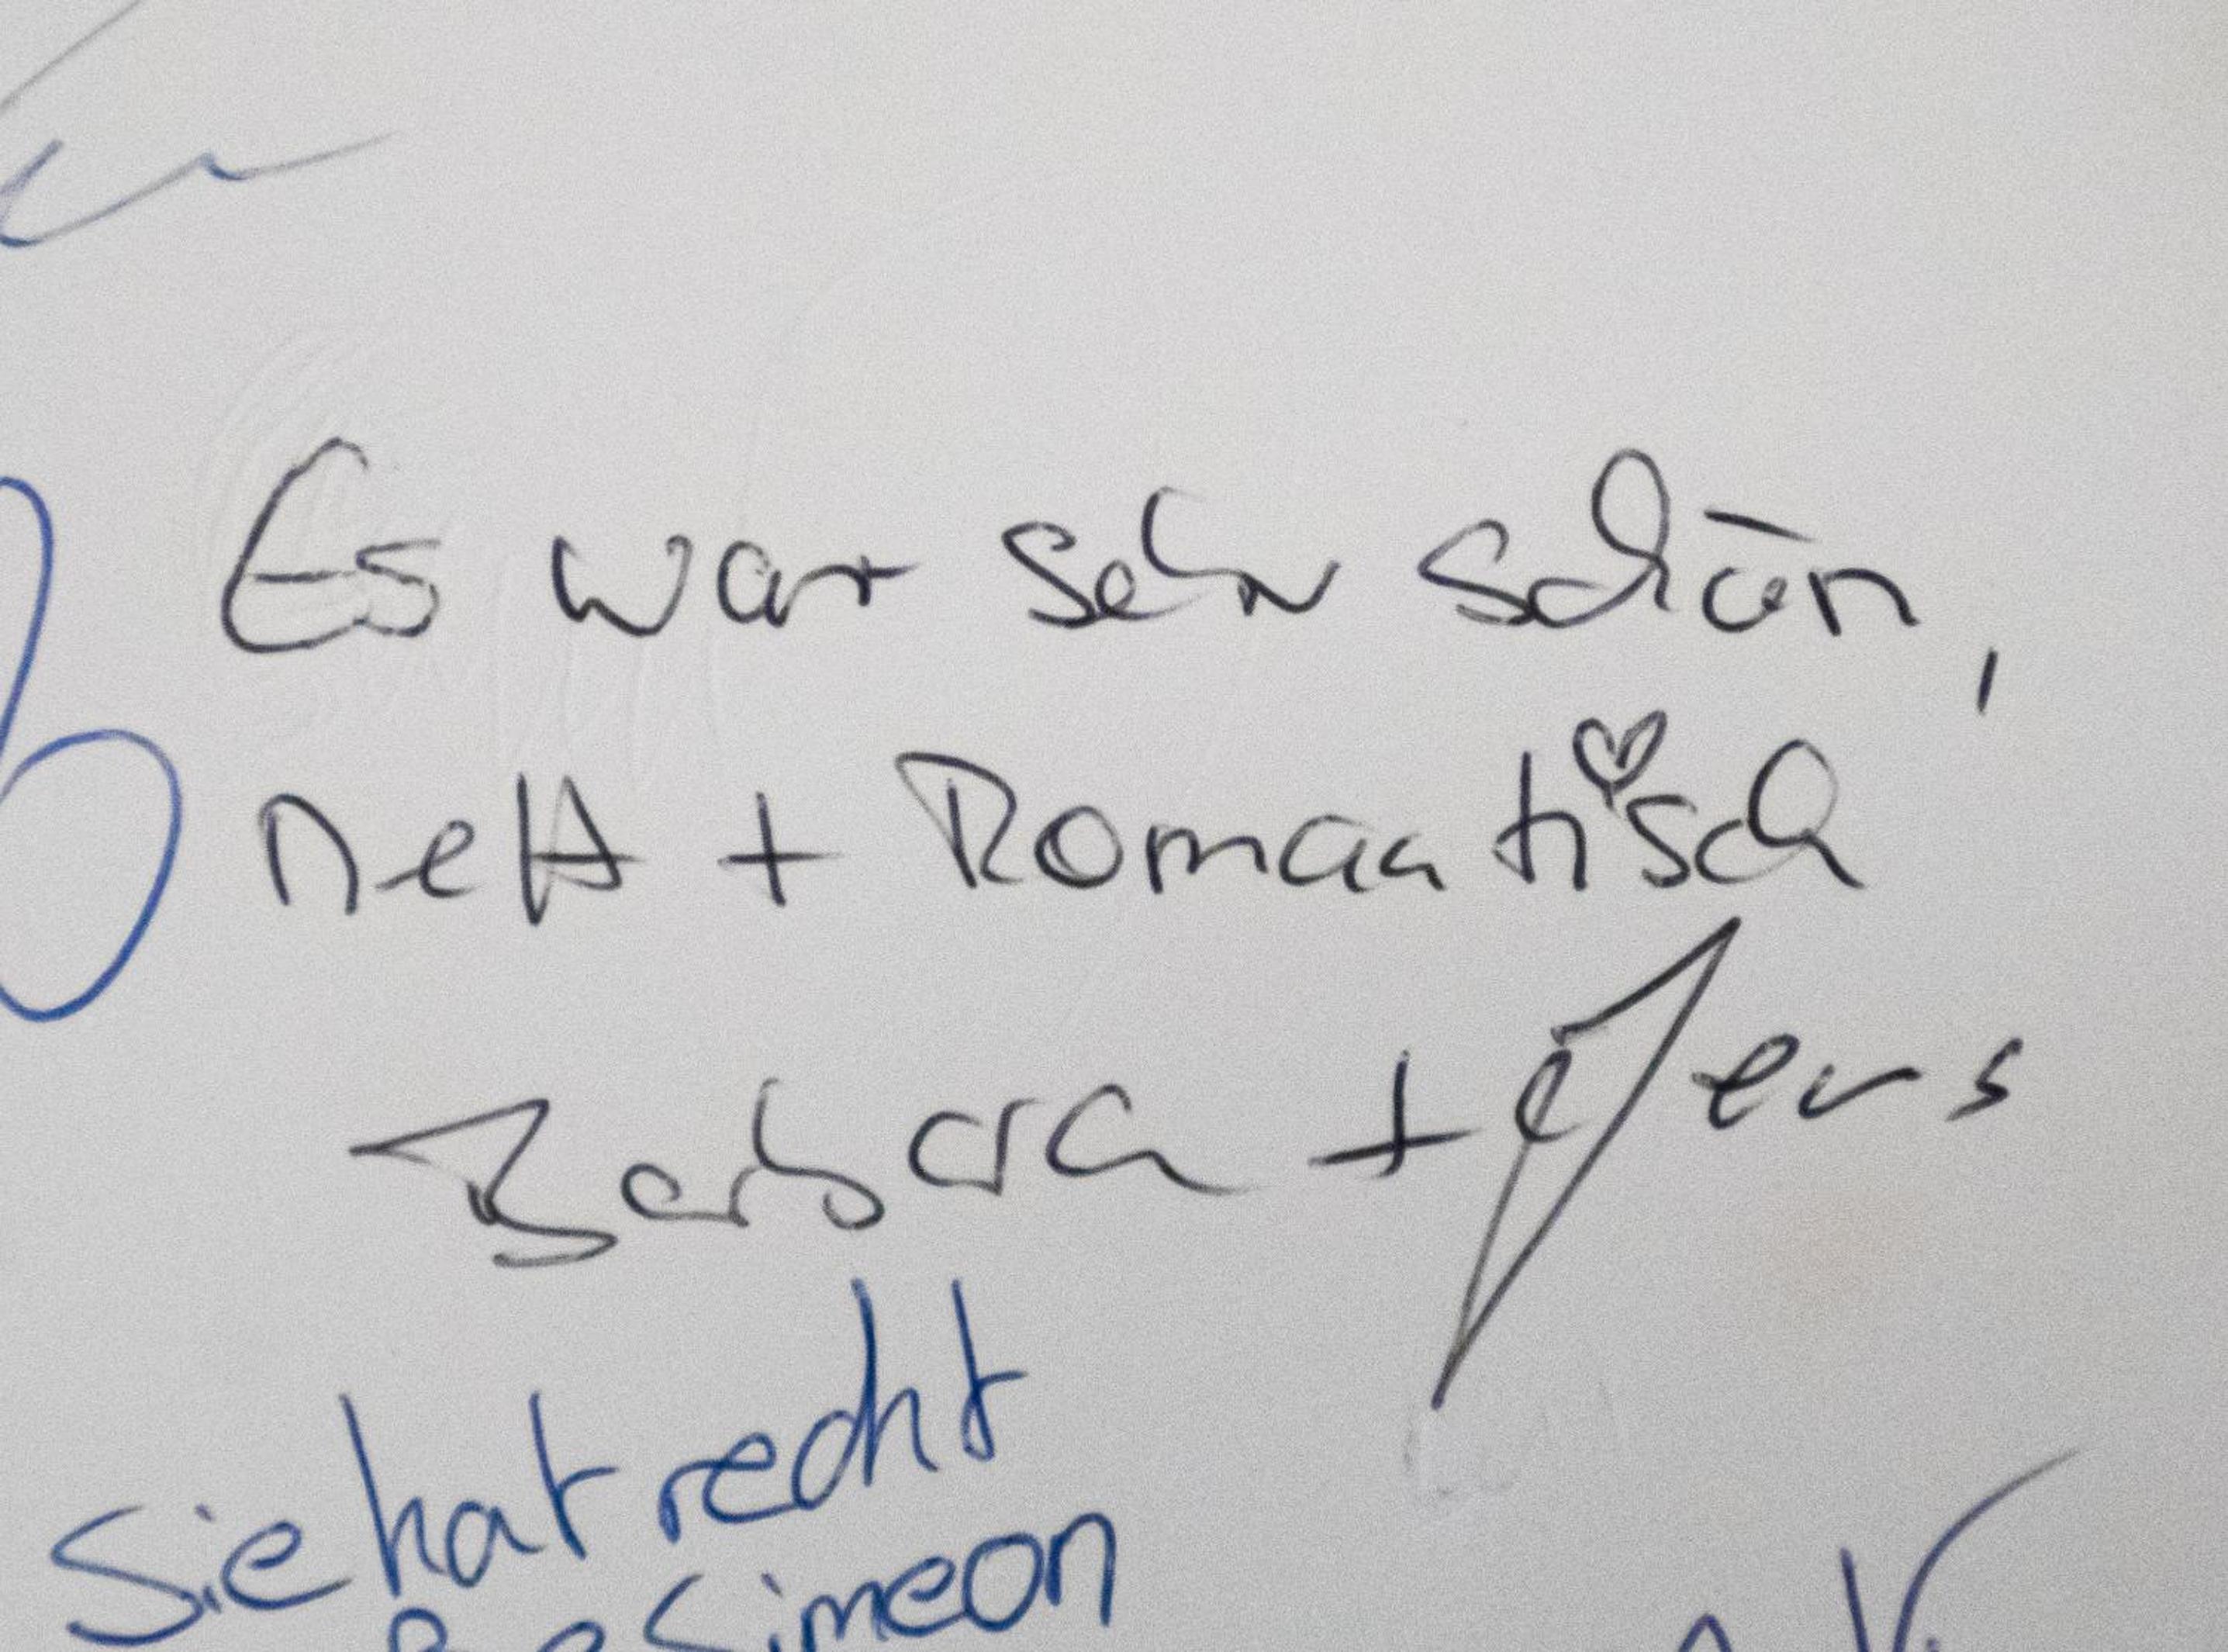 Es war sehr schön,
nett + Romantisch
Barbara + Jens
Sie hat recht
Simeon